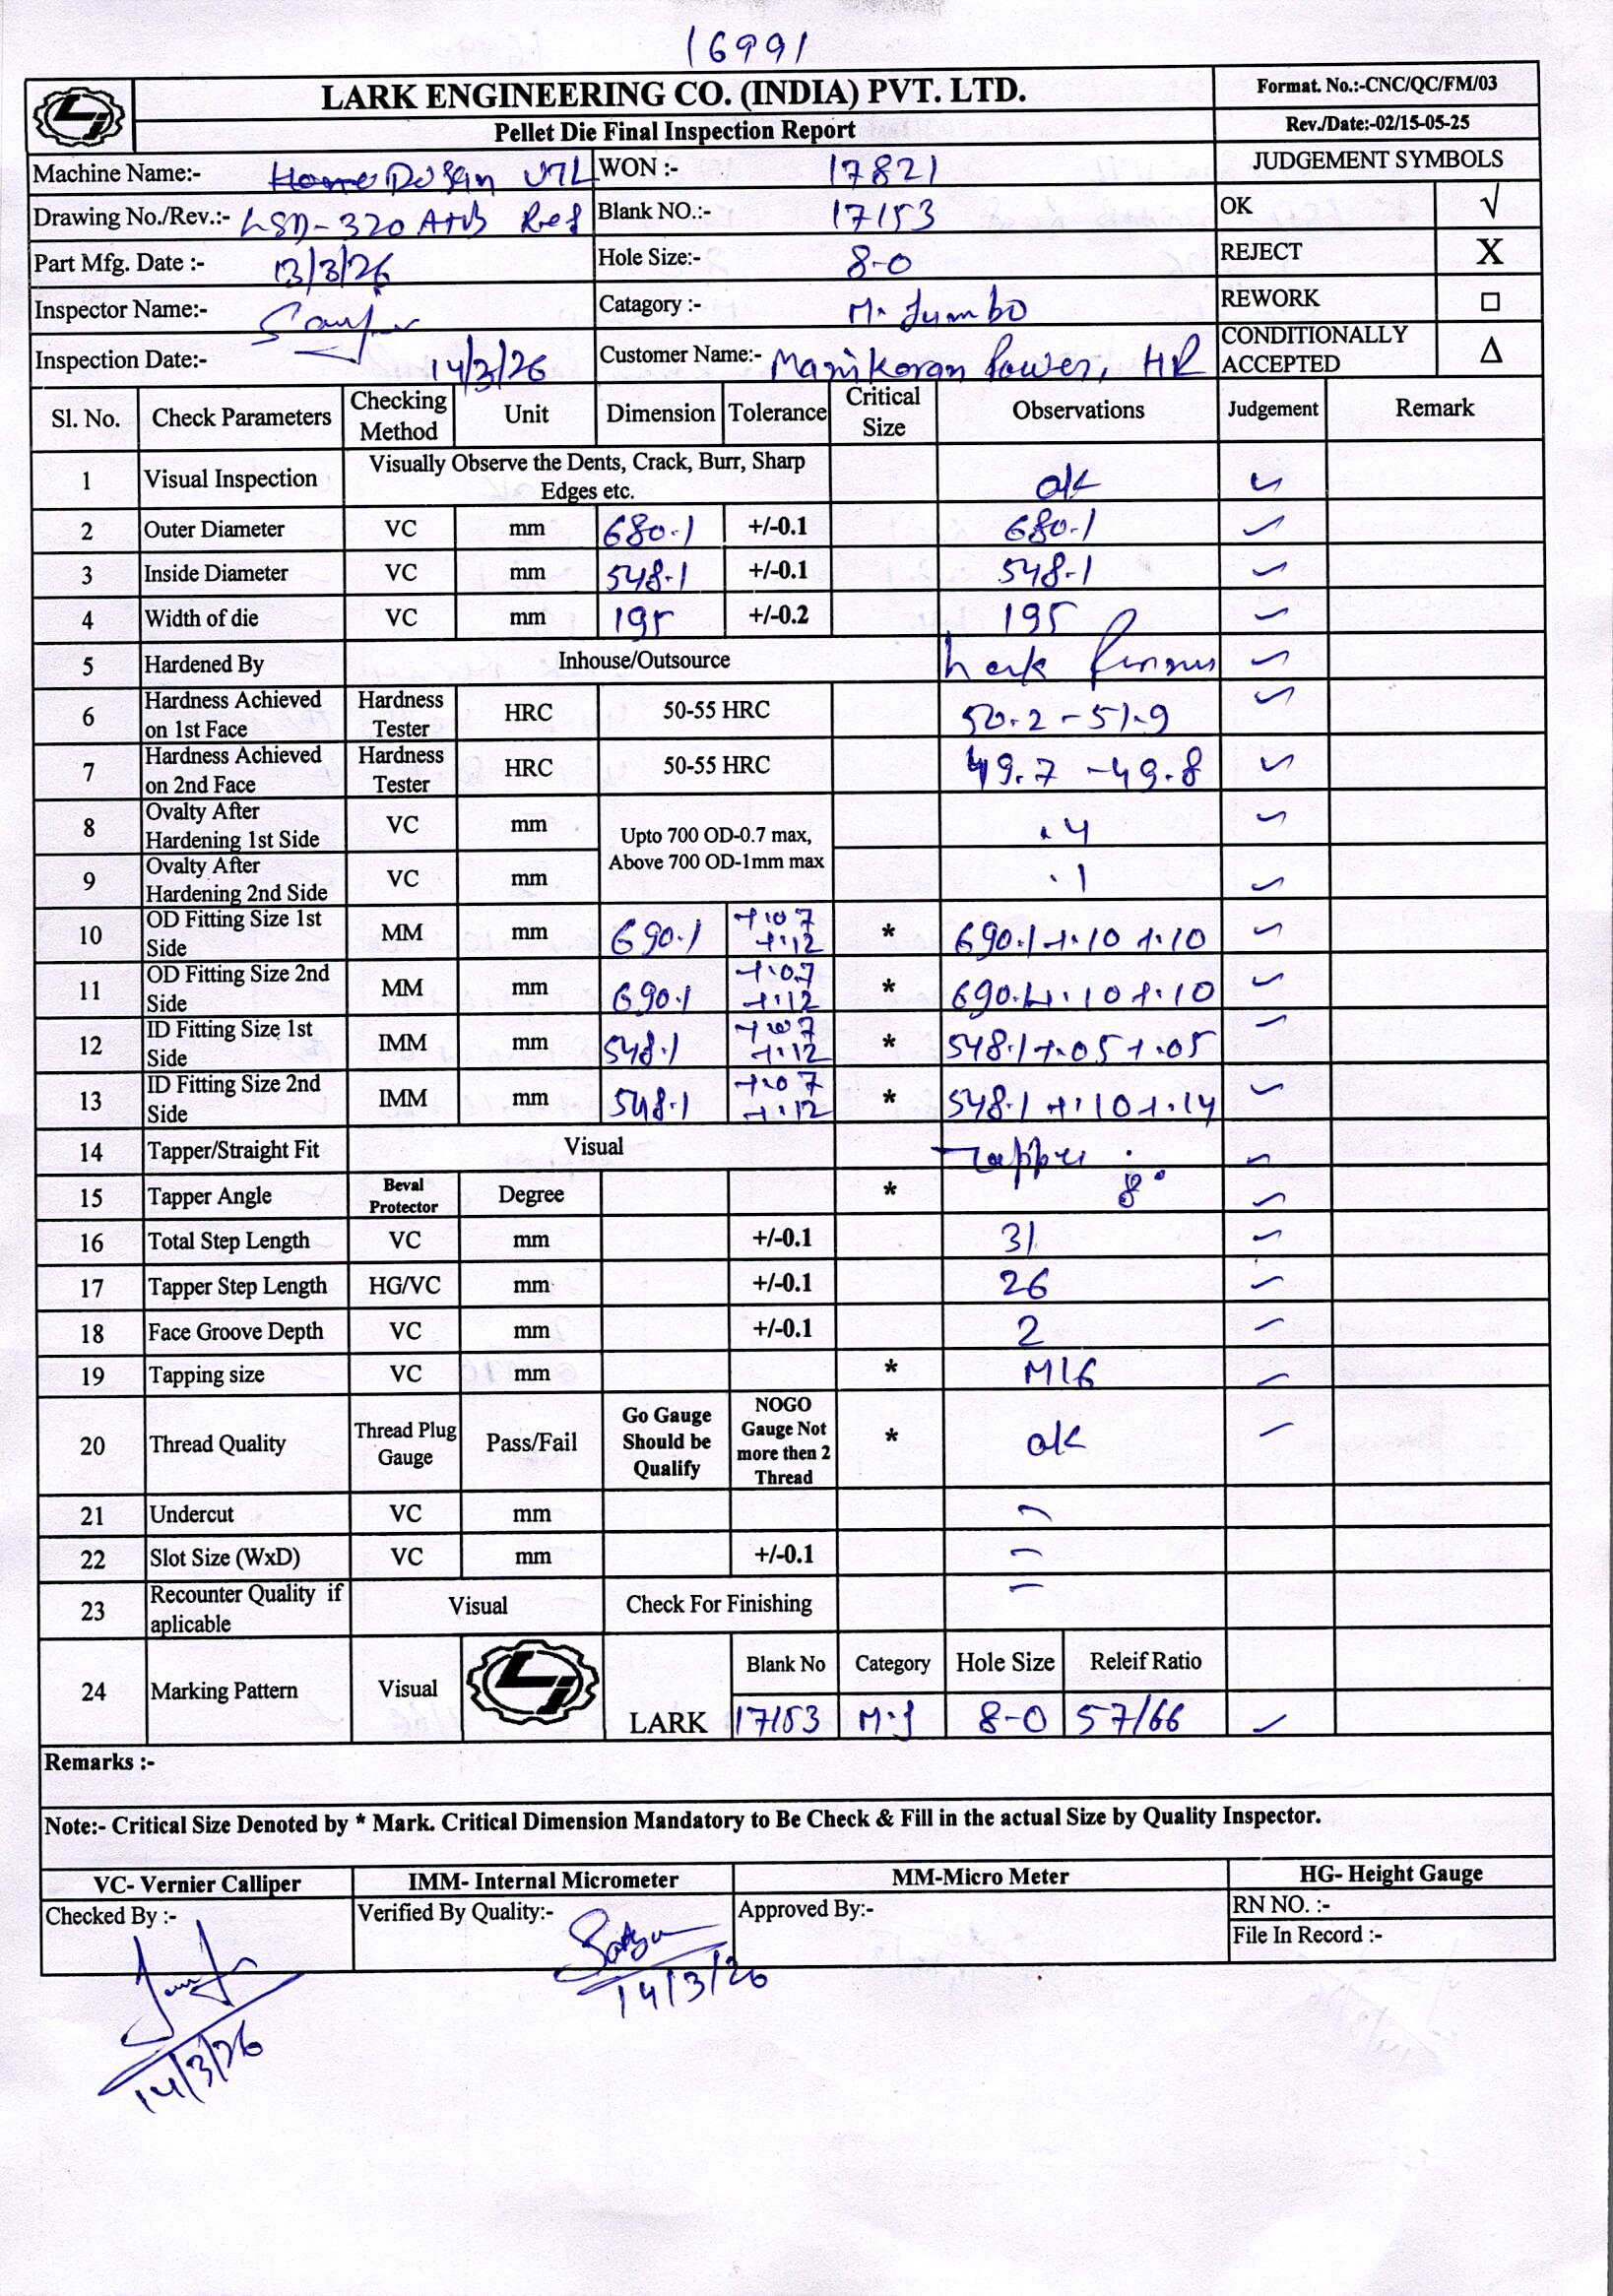 16991
LARK ENGINEERING CO. (INDIA) PVT. LTD.
Format. No.:-CNC/QC/FM/03
Pellet Die Final Inspection Report
Rev./Date:-02/15-05-25
Machine Name:- VTL WON :- 17821 JUDGEMENT SYMBOLS
Drawing No./Rev.:- LSD-320 A+B Ref Blank NO.:- 17153 OK √
Part Mfg. Date :- 13/3/26 Hole Size:- 8-0 REJECT X
Inspector Name:- Catagory :- M. Jumbo REWORK □
Inspection Date:- 14/3/26 Customer Name:- Manikaran Power, HR CONDITIONALLY ACCEPTED Δ
Sl. No. Check Parameters Checking Method Unit Dimension Tolerance Critical Size Observations Judgement Remark
1 Visual Inspection Visually Observe the Dents, Crack, Burr, Sharp Edges etc. ok ✓
2 Outer Diameter VC mm 680.1 +/-0.1 680.1 ✓
3 Inside Diameter VC mm 548.1 +/-0.1 548.1 ✓
4 Width of die VC mm 195 +/-0.2 195 ✓
5 Hardened By Inhouse/Outsource Lark ✓
6 Hardness Achieved on 1st Face Hardness Tester HRC 50-55 HRC 50.2-51.9 ✓
7 Hardness Achieved on 2nd Face Hardness Tester HRC 50-55 HRC 49.7-49.8 ✓
8 Ovalty After Hardening 1st Side VC mm Upto 700 OD-0.7 max, Above 700 OD-1mm max .4 ✓
9 Ovalty After Hardening 2nd Side VC mm .1 ✓
10 OD Fitting Size 1st Side MM mm 690.1 +.07 +.12 * 690.1+.10 +.10 ✓
11 OD Fitting Size 2nd Side MM mm 690.1 +.07 +.12 * 690.1+.10+.10 ✓
12 ID Fitting Size 1st Side IMM mm 548.1 +.07 +.12 * 548.1+.05+.05 ✓
13 ID Fitting Size 2nd Side IMM mm 548.1 +.07 +.12 * 548.1+.10+.14 ✓
14 Tapper/Straight Fit Visual Tapper ✓
15 Tapper Angle Beval Protector Degree * 8° ✓
16 Total Step Length VC mm +/-0.1 31 ✓
17 Tapper Step Length HG/VC mm +/-0.1 26 ✓
18 Face Groove Depth VC mm +/-0.1 2 ✓
19 Tapping size VC mm * M16 ✓
20 Thread Quality Thread Plug Gauge Pass/Fail Go Gauge Should be Qualify NOGO Gauge Not more then 2 Thread * ok ✓
21 Undercut VC mm -
22 Slot Size (WxD) VC mm +/-0.1 -
23 Recounter Quality if aplicable Visual Check For Finishing -
24 Marking Pattern Visual LARK Blank No Category Hole Size Releif Ratio
17153 M.J 8-0 57/66 ✓
Remarks :-
Note:- Critical Size Denoted by * Mark. Critical Dimension Mandatory to Be Check & Fill in the actual Size by Quality Inspector.
VC- Vernier Calliper IMM- Internal Micrometer MM-Micro Meter HG- Height Gauge
Checked By :- Verified By Quality:- Approved By:- RN NO. :-
File In Record :-
14/3/26
14/3/26